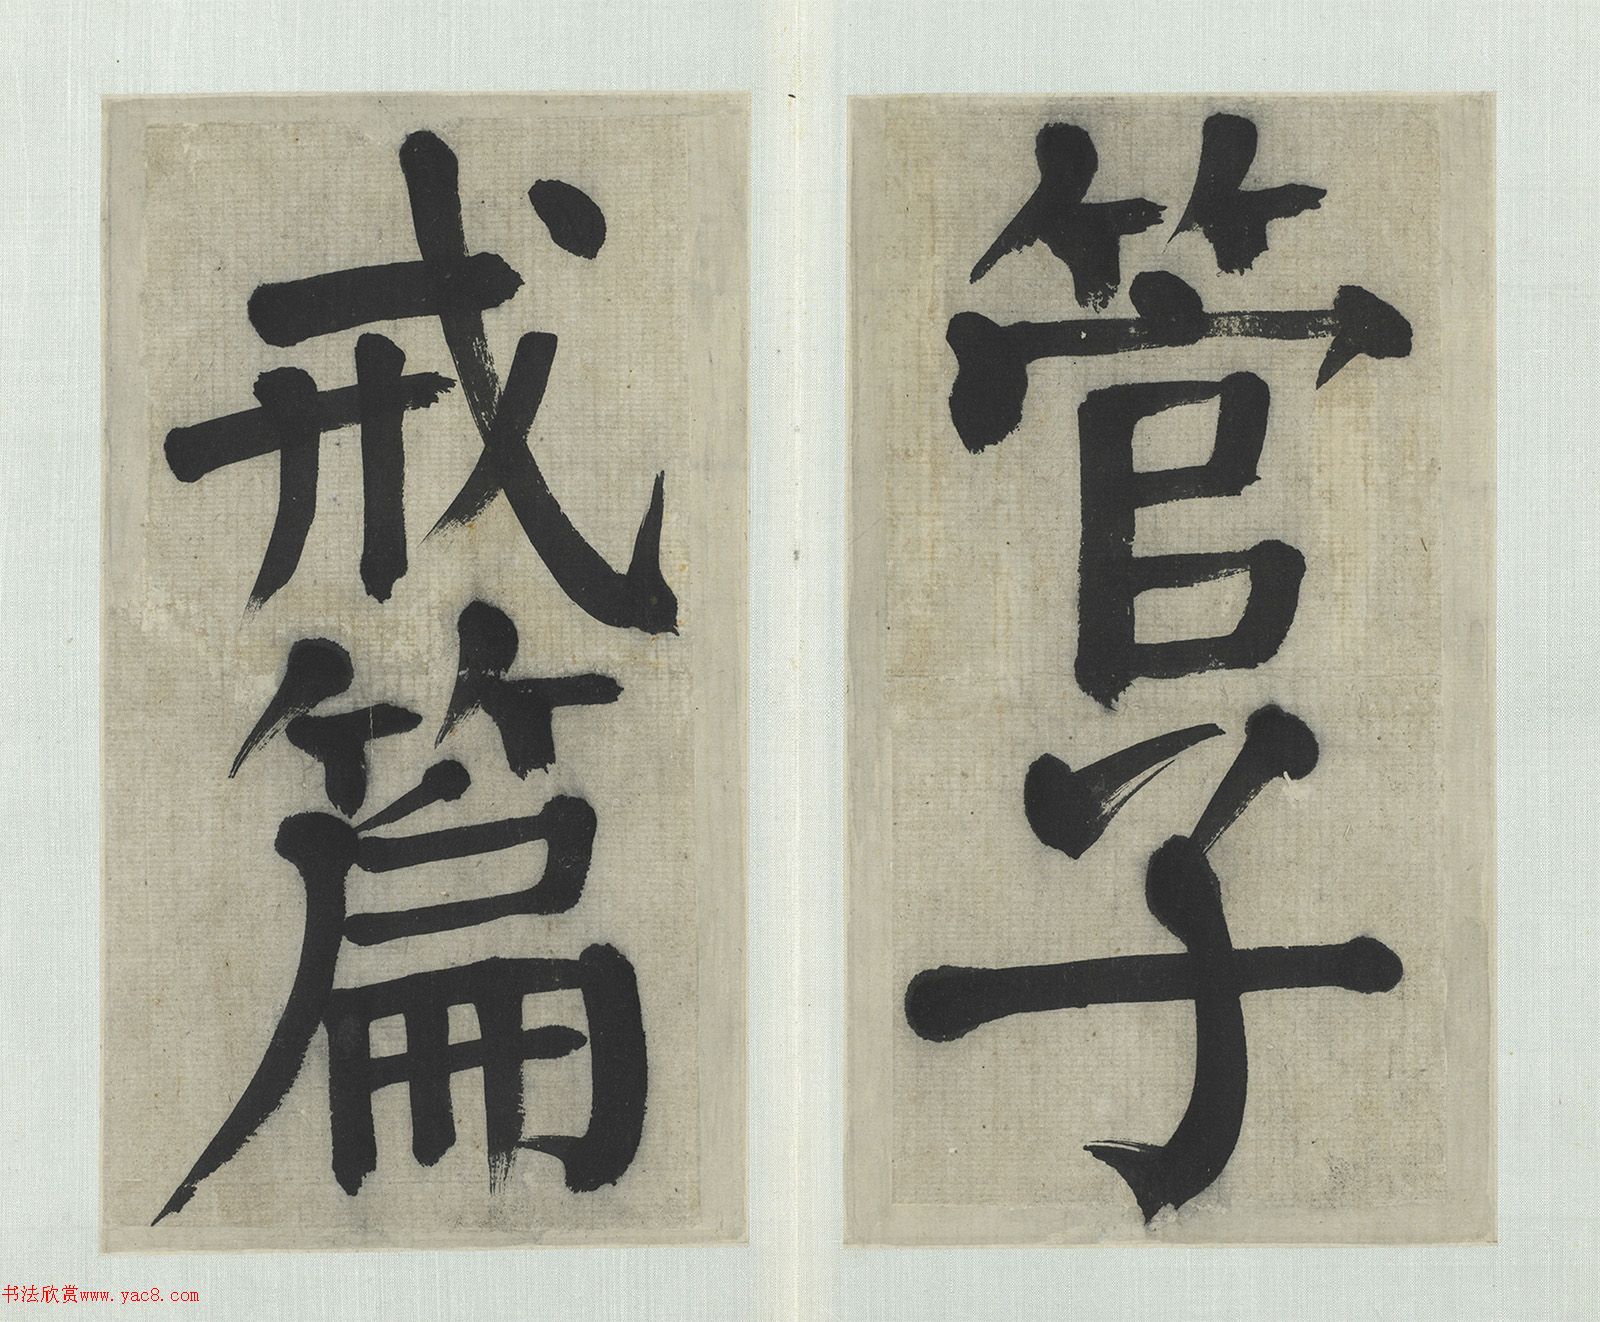 管子
戒篇
书法欣赏www.yac8.com